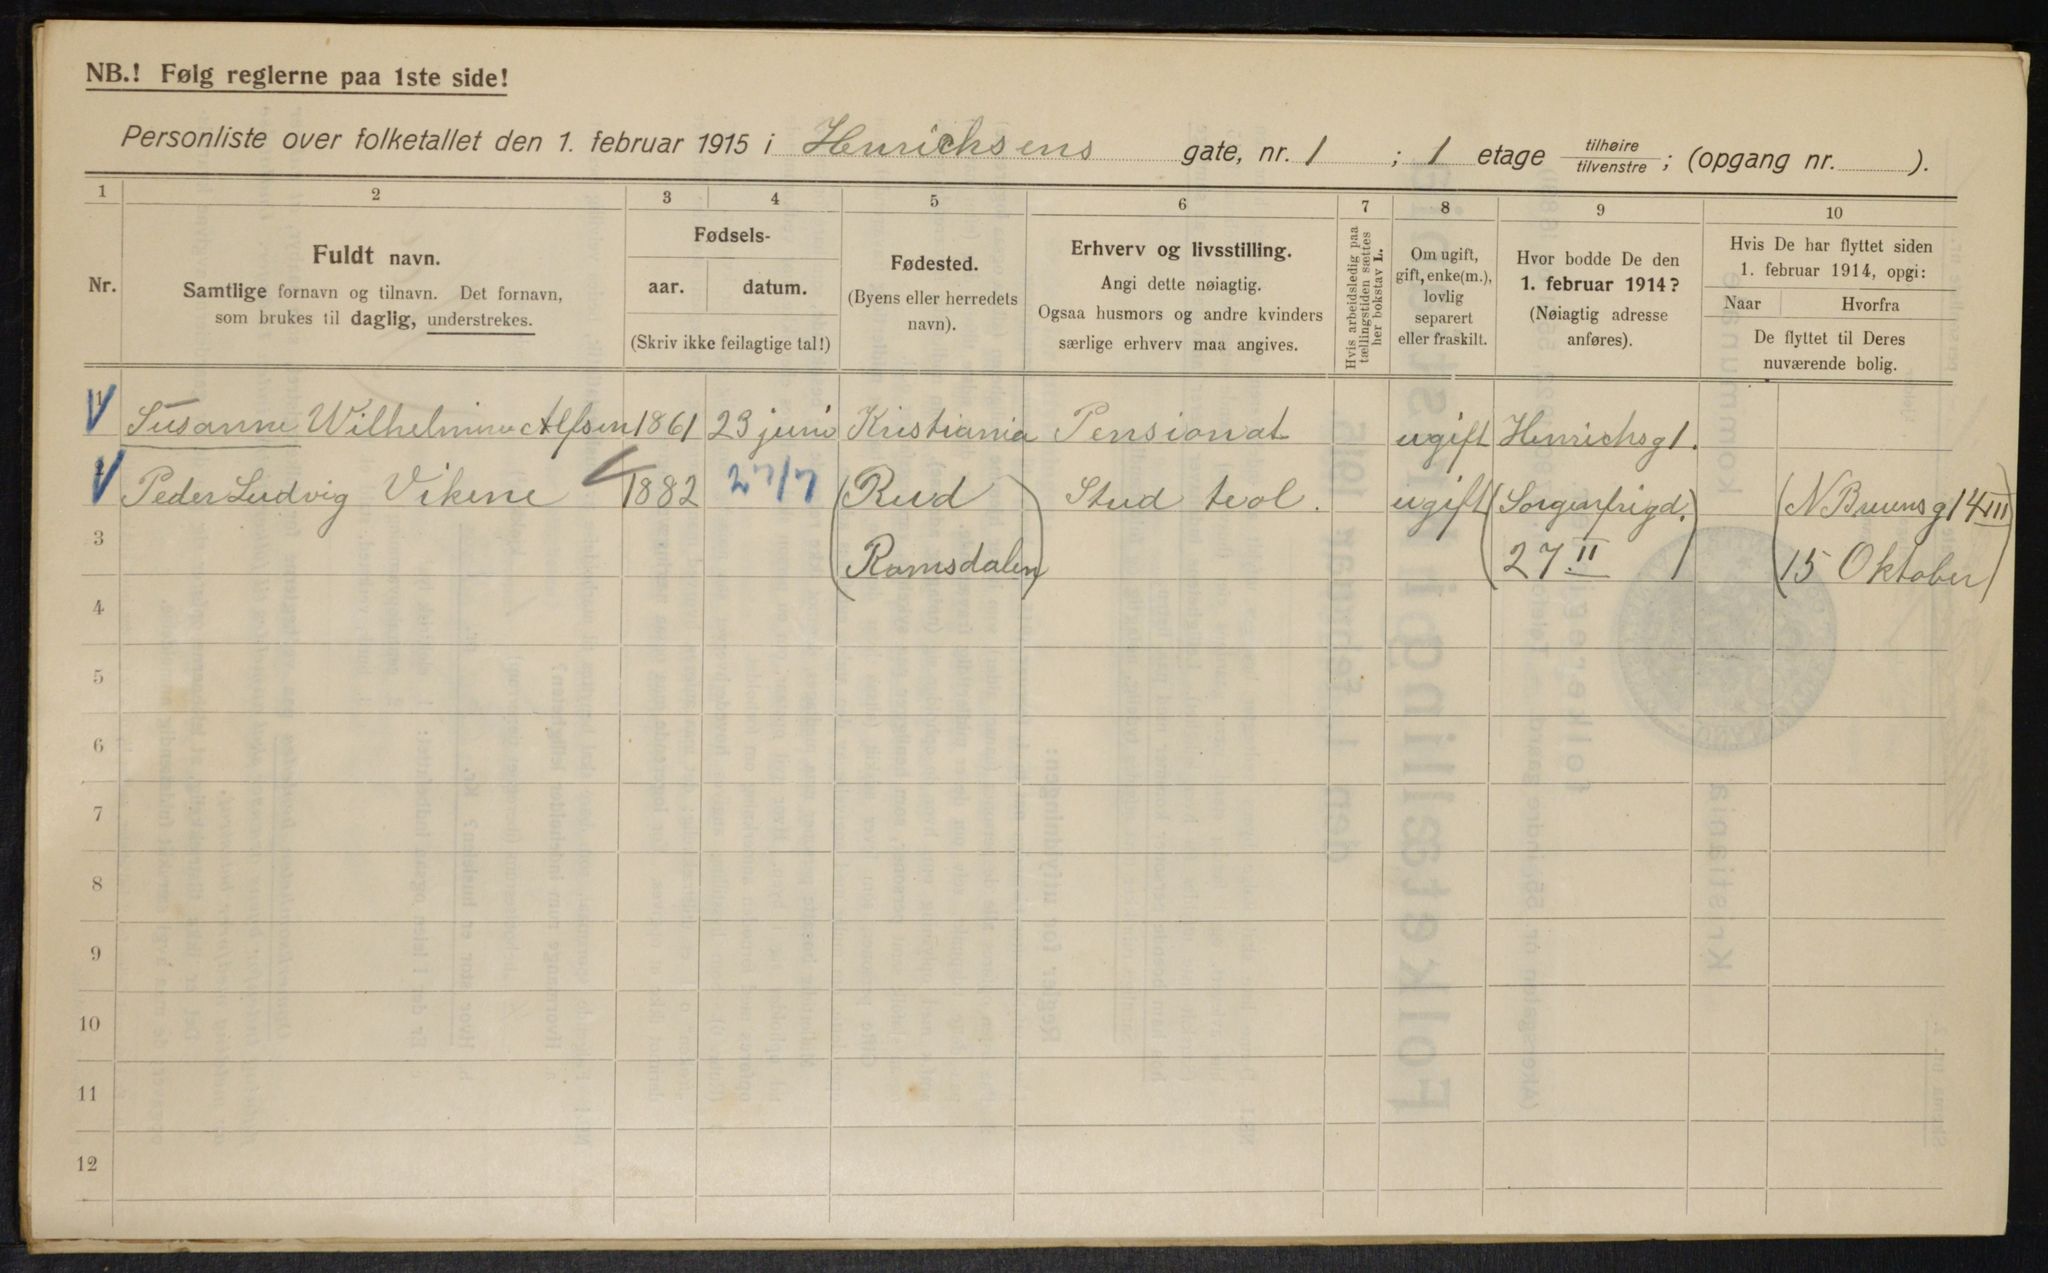 NB.! Følg reglerne paa 1ste side!
Personliste over folketallet den 1. februar 1915 i Henrichsens gate, nr. 1 ; 1 etage tilhøire tilvenstre ; (opgang nr. ).
1 2 3 4 5 6 7 8 9 10
Nr.
Fuldt navn.
Samtlige fornavn og tilnavn. Det fornavn,
som brukes til daglig, understrekes.
Fødsels-
aar. datum.
(Skriv ikke feilagtige tal!)
Fødested.
(Byens eller herredets
navn).
Erhverv og livsstilling.
Angi dette nøiagtig.
Ogsaa husmors og andre kvinders
særlige erhverv maa angives.
Hvis arbeidsledig paa
tællingstiden sættes
her bokstav L.
Om ugift,
gift, enke(m.),
lovlig
separert
eller fraskilt.
Hvor bodde De den
1. februar 1914?
(Nøiagtig adresse
anføres).
Hvis De har flyttet siden
1. februar 1914, opgi:
Naar Hvorfra
De flyttet til Deres
nuværende bolig.
1 Susanne Wilhelmine Alfsen 1861 23 juni Kristiania Pensionat ugift Henrichsg 1.
Peder Ludvig Vikene 1882 27/7 (Rud Stud teol. ugift (Sorgenfrigd. (N Bruunsg 14 III
3 Romsdalen) 27 II) 15 Oktober)
4
5
6
7
8
9
10
11
12